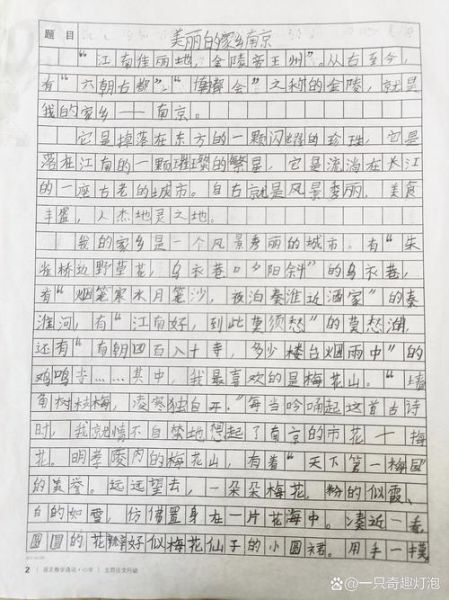 题目 美丽的家乡南京
“江南佳丽地，金陵帝王州”。从古至今，
有“六朝古都”、“ 都会”之称的金陵，就是
我的家乡——南京。
它是掉落在东方的一颗闪耀的珍珠，它是
落在江南的一颗璀璨的繁星，它是流淌在长江
的一座古老的城市。自古就是风景秀三，美食
丰盛，人杰地灵之地。
我的家乡是一个风景秀丽的城市。有“朱
雀桥边野草花，乌衣巷口夕阳斜”的乌衣巷，
有“烟笼寒水月笼沙，夜泊秦淮近酒家”的秦
淮河，有“江南好，到此莫须愁”的莫愁湖，
还有“南朝四百八十寺，多少楼台烟雨中”的
鸡鸣寺……其中，我最喜欢的是梅花山。“墙
角数枝梅，凌寒独自开。”每当吟诵起这首古诗
时，我就情不自禁地想起了南京的市花——梅
花。明孝陵内的梅花山，有着“天下第一梅园”
的美誉。远远望去，一朵朵梅花，粉的似霞，
白的如雪，仿佛置身在一片花海中。凑近一看，
圆圆的花瓣好似梅花仙子的小圆裙。用手一摸
2 语文教学通讯·小学
百家号@一只奇趣灯泡